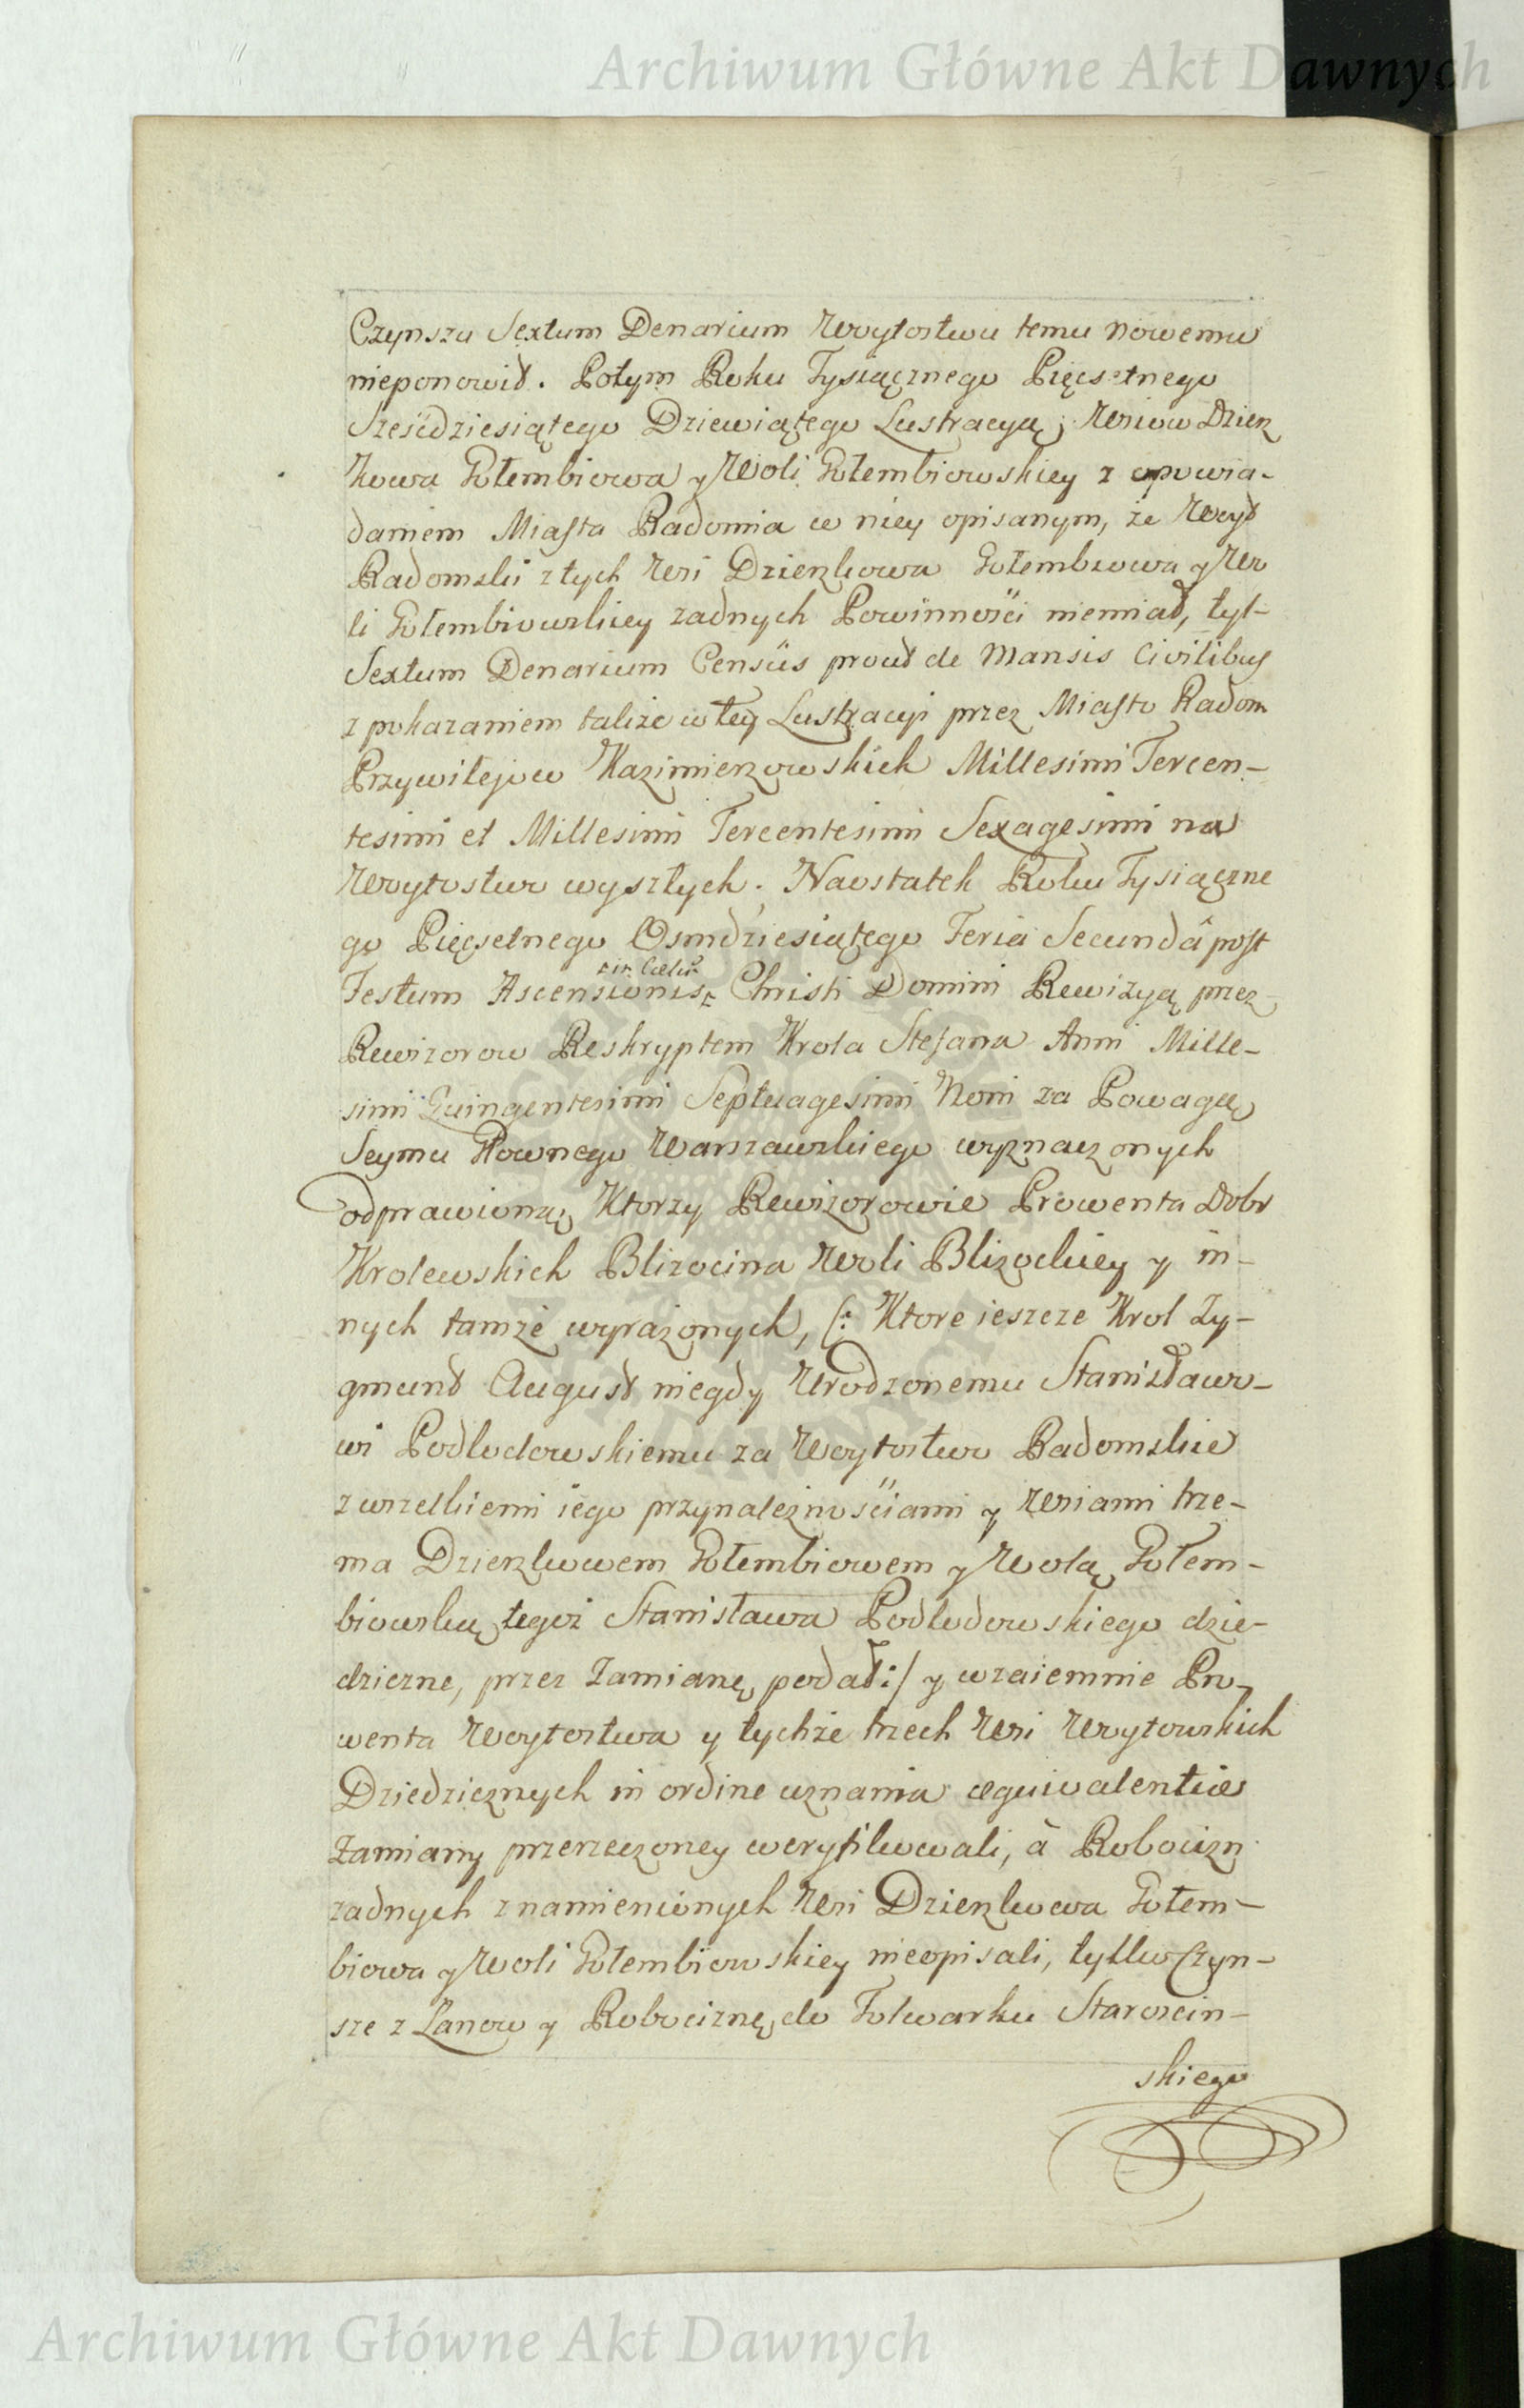 Archiwum Główne Akt Dawnych
Czynszu Sextum Denarium Woytostwu temu nowemu
nieponowił. Potym Roku Tysiącznego Pięcsetnego
Sześćdziesiątego Dziewiątego Lustracyą, Wsiow Dzierz
kowa Gołembiowa y Woli Gołembiowskiey z opowia-
daniem Miasta Radomia w niey opisanym, że Woyt
Radomski z tych Wsi Dzierzkowa Gołembiowa y Wo
li Gołembiowskiey zadnych Powinności niemiał, tyl-
Sextum Denarium Census prout de Mansis Civilibus
z pokazaniem takze w tey Lustracyi przez Miasto Radom
Przywilejow Kazimierzowskich Millesimi Tercen-
tesimi et Millesimi Tercentesimi Sexagesimi na
Woytostwo wyszłych. Naostatek Roku Tysiączne
go Pięcsetnego Osmdziesiątego Feria Secundâ post
in Cœlis
Festum Ascensionis Christi Domini Rewizyą przez
Rewizorow Reskryptem Krola Stefana Anni Mille-
simi Quingentesimi Septuagesimi Noni za Powagą
Seymu Głownego Warszawskiego wyznaczonych
odprawioną, Ktorzy Rewizorowie Prowenta Dobr
Krolewskich Blizocina Woli Blizockiey y in-
nych tamże wyrażonych, (: Ktore ieszcze Krol Zy-
gmunt August niegdy Urodzonemu Stanisławo-
wi Podlodowskiemu za Woytostwo Radomskie
z wszelkiemi iego przynależnościami y Wsiami trze-
ma Dzierzkowem Gołembiowem y Wolą Gołem-
biowską tegoż Stanisława Podlodowskiego dzie-
dziczne, przez Zamianę podał :/ y wzaiemnie Pro-
wenta Woytostwa y tychże trzech Wsi Woytowskich
Dziedzicznych in ordine uznania æquivalentiæ
Zamiany przerzeczoney weryfikowali, à Robocizn
zadnych znamienionych Wsi Dzierzkowa Gołem-
biowa y Woli Gołembiowskiey nieopisali, tylko Czyn-
sze z Łanow y Robociznę do Folwarku Staroscin-
skiego
Archiwum Główne Akt Dawnych